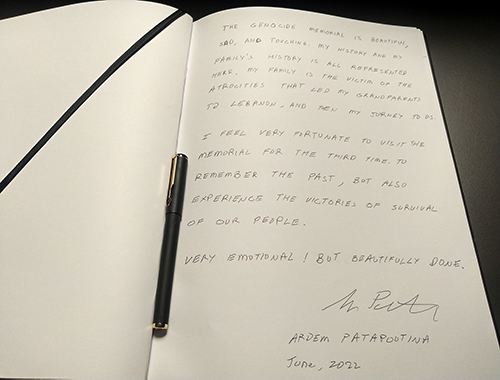 THE GENOSIDE MEMORIAL IS BEAUTIFUL,
SAD, AND TOUCHING. MY HISTORY AND MY
FAMILY'S HISTORY IS ALL REPRESENTED
HERE. MY FAMILY IS THE VICTIM OF THE
ATROCITIES THAT LED MY GRANDPARENTS
TO LEBANON, AND THEN MY JOURNEY TO US.
I FEEL VERY FORTUNATE TO VISIT THE
MEMORIAL FOR THE THIRD TIME. TO
REMEMBER THE PAST, BUT ALSO
EXPERIENCE THE VICTORIES OF SURVIVAL
OF OUR PEOPLE.
VERY EMOTIONAL! BUT BEAUTIFULLY DONE.
ARDEM PATAPOUTINA
June, 2022